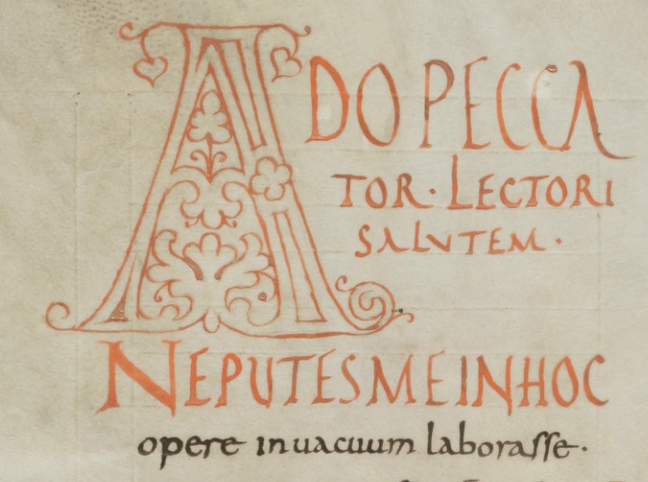 ADO PECCA
TOR · LECTORI
SALVTEM ·
NEPUTESMEINHOC
opere inuacuum laborasse ·